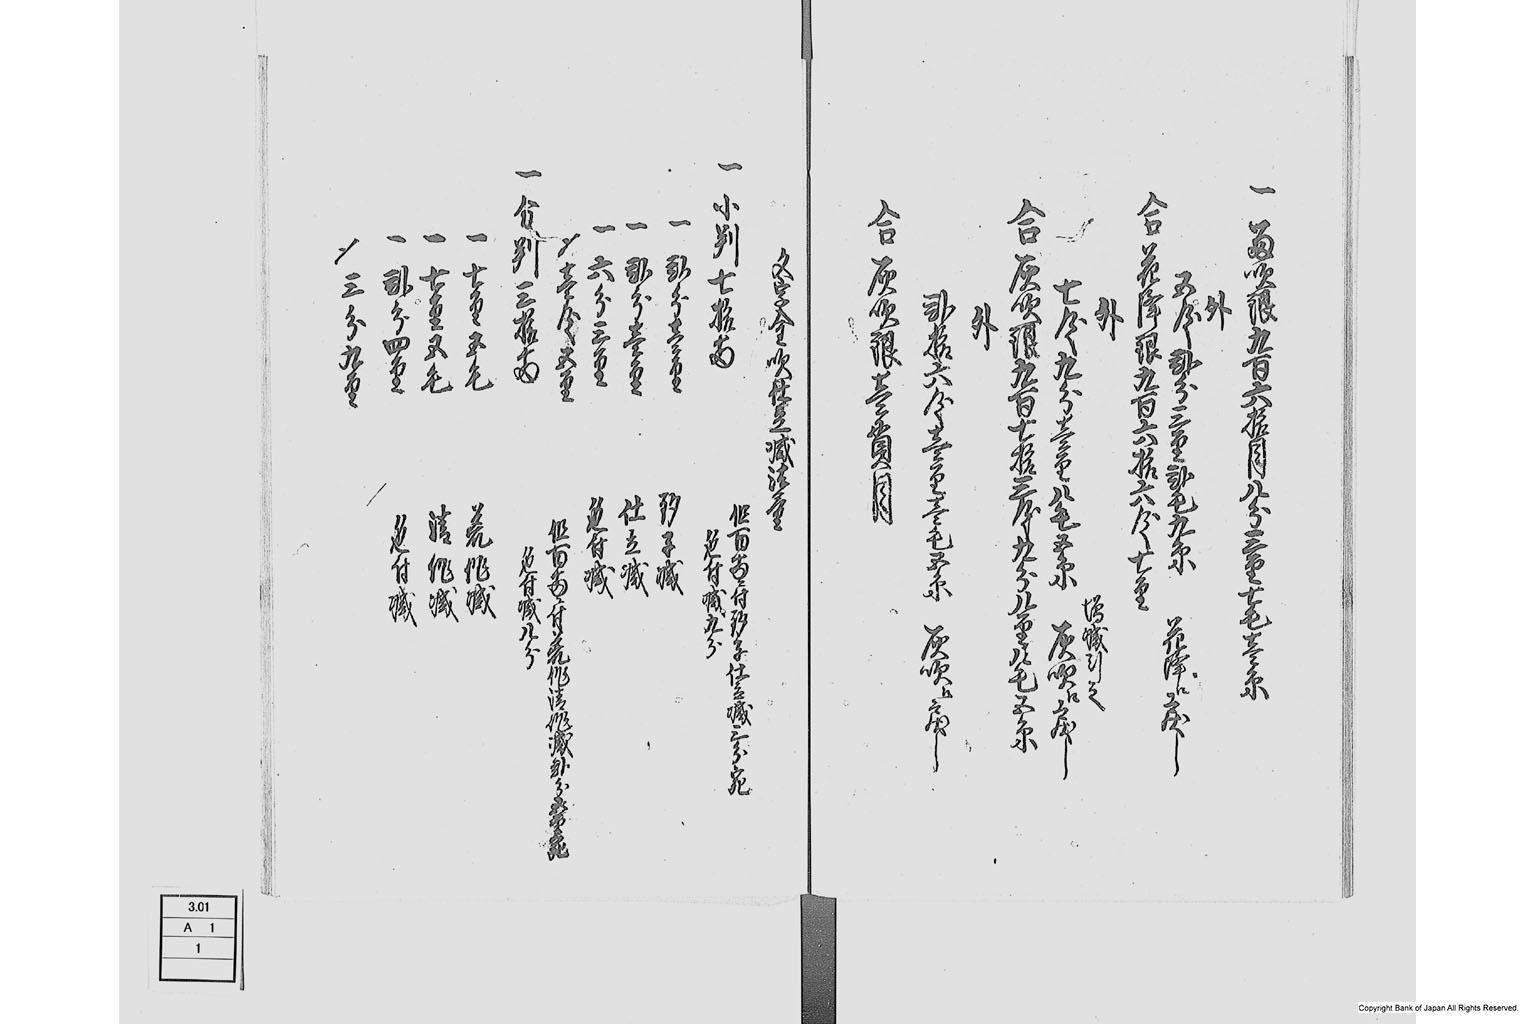 一 吹銀九百六拾目八分三厘七毛壱糸
外
五匁弐分三厘弐毛九糸 花降
合花降銀九百六拾六匁七厘
外
増減引之
七匁九分壱厘八毛五糸 灰吹
合灰吹銀九百七拾三匁九分八厘八毛五糸
外
弐拾六匁壱厘壱毛五糸 灰吹
合灰吹銀壱貫目
文字金吹仕立減法量
一 小判七拾両 但百両ニ付砂子仕立減三分宛
色付減九分
一 弐分壱厘 砂子減
一 弐分壱厘 仕立減
一 六分三厘 色付減
〆壱匁五厘
一 分判三拾両 但百両ニ付荒作清作減弐分五厘宛
色付減八分
一 七厘五毛 荒作減
一 七厘五毛 清作減
一 弐分四厘 色付減
〆三分九厘
3.01
A 1
1
Copyright Bank of Japan All Rights Reserved.